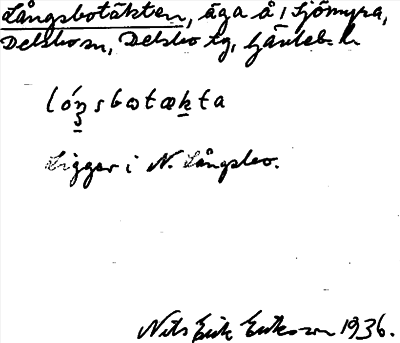 Långsbotäkten, äga å 1 Sjömyra,
Delsbo sn, Delsbo tg, Gävleb. l.
lóŋsbotækta
Ligger i N. Långsbo.
Nils Erik Eriksson 1936.